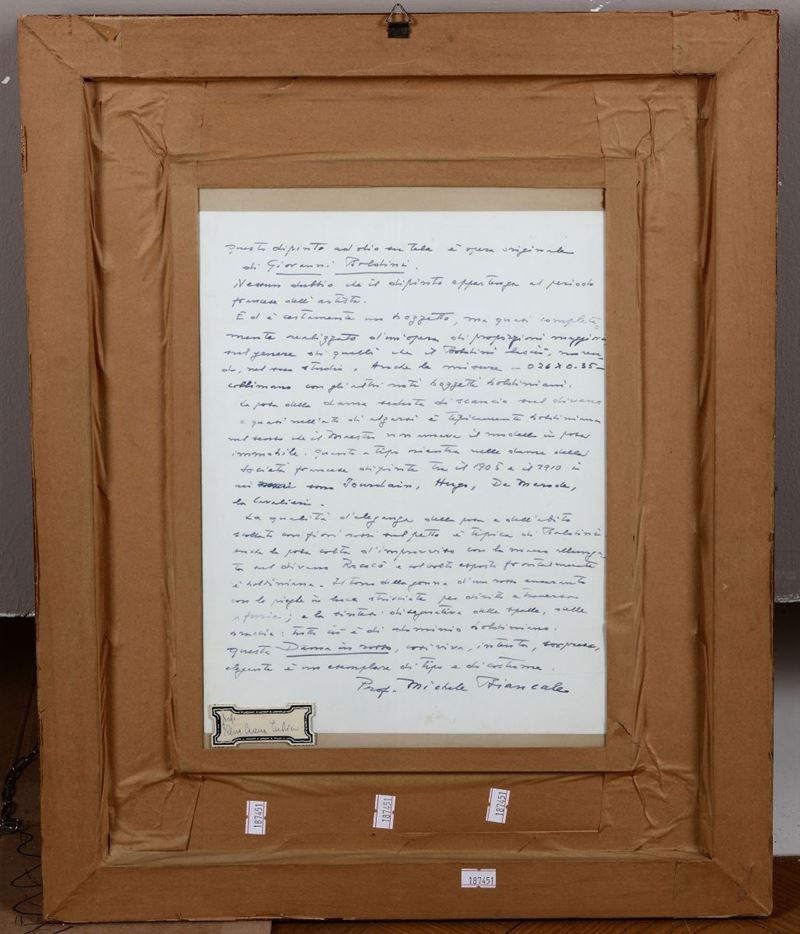 Questo dipinto ad olio su tela è opera originale
di Giovanni Boldini.
Nessun dubbio che il dipinto appartenga al periodo
francese dell'artista.
Ed è certamente un bozzetto, ma quasi completa=
mente realizzato d'un'opera di proporzioni maggiori
sul genere di quelli che il Boldini lasciò, moren-
do, nel suo studio. Anche le misure - 026 x 0.35 -
collimano con gli altri noti bozzetti boldiniani.
La posa della dama seduta di scancio sul divano
e quasi nell'atto di alzarsi è tipicamente boldiniana
nel senso che il Maestro non amava il modello in posa
immobile. Questo tipo rientra nelle dame della
Società francese dipinte tra il 1905 e il 1910 i
cui nomi sono Jourdain, Hugo, De Merode,
la Cavalieri.
La qualità d'eleganza della posa e dell'abito
scollato con fiori rossi sul petto è tipica di Boldini
anche la posa colta d'improvviso con la mano allunga-
ta sul divano Rococò e col volto esposto frontalmente
è boldiniana. Il tono della gonna d'un rosso amaranto
con le pieghe in luce strisciate per diritto e traverso
a furia; e la sintesi disegnativa delle spalle, delle
braccia: tutto ciò è di dominio boldiniano.
Questa Dama in rosso, così viva, intenta, sorpresa,
elegante è un esemplare di tipo e di costume.
Prof. Michele Biancale
187451
187451
187451
187451